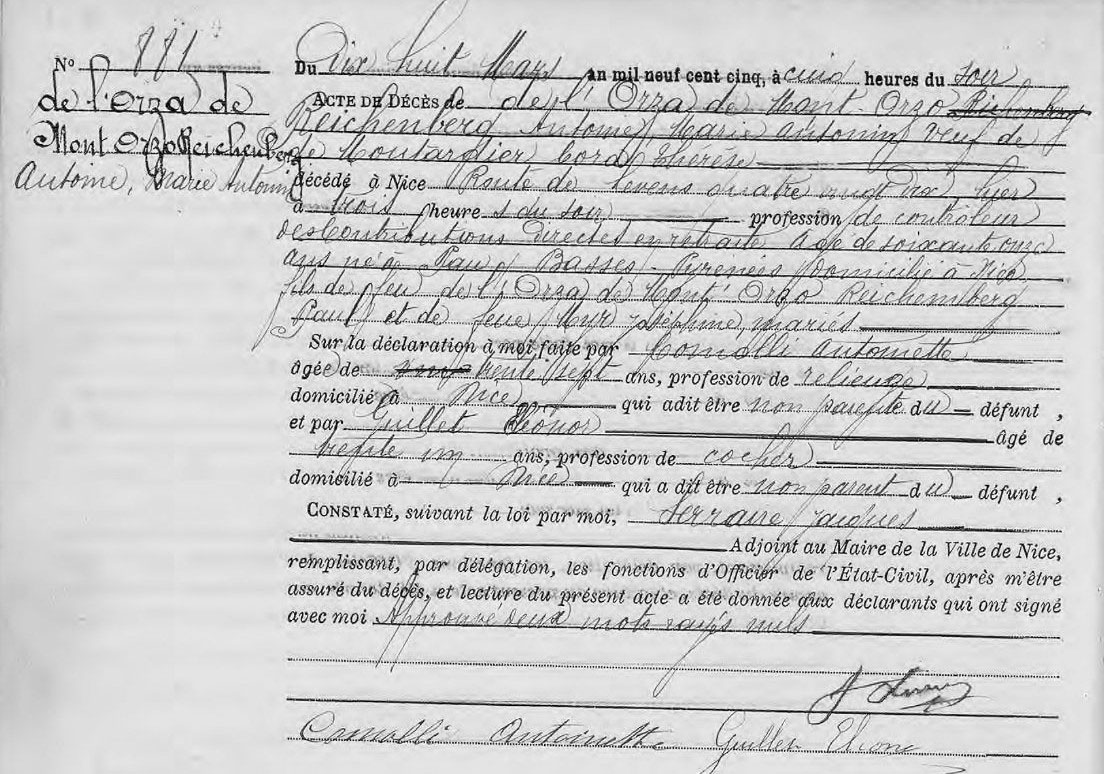 N° 881
de l'Orza de
Mont Orzo Reichenberg
Antoine, Marie Antonin
Du Dix huit Mars an mil neuf cent cinq, à cinq heures du soir
ACTE DE DÉCÈS de de l'Orza de Mont-Orzo Reichenberg
Reichenberg Antoine, Marie Antonin veuf de
de Moutardier Cora Thérèse
décédé à Nice Route de Levens quatre vingt dix hier
à trois heures du soir profession de contrôleur
des Contributions directes en retraite âgé de soixante onze
ans né à Pau (Basses-Pyrénées) domicilié à Nice
fils de feu de l'Orza de Mont'Orzo Reichemberg
Paul, et de feue Mur Joséphine mariés
Sur la déclaration à moi faite par Comolli Antoinette
âgée de trente sept ans, profession de relieuse
domicilié à Nice qui a dit être non parente du défunt,
et par Guillet Eléonor âgé de
trente un ans, profession de cocher
domicilié à Nice qui a dit être non parent du défunt,
CONSTATÉ, suivant la loi par moi, Jacques
Adjoint au Maire de la Ville de Nice,
remplissant, par délégation, les fonctions d'Officier de l'État-Civil, après m'être
assuré du décès, et lecture du présent acte a été donnée aux déclarants qui ont signé
avec moi Approuvé deux mots rayés nuls
Comolli Antoinette Guillet